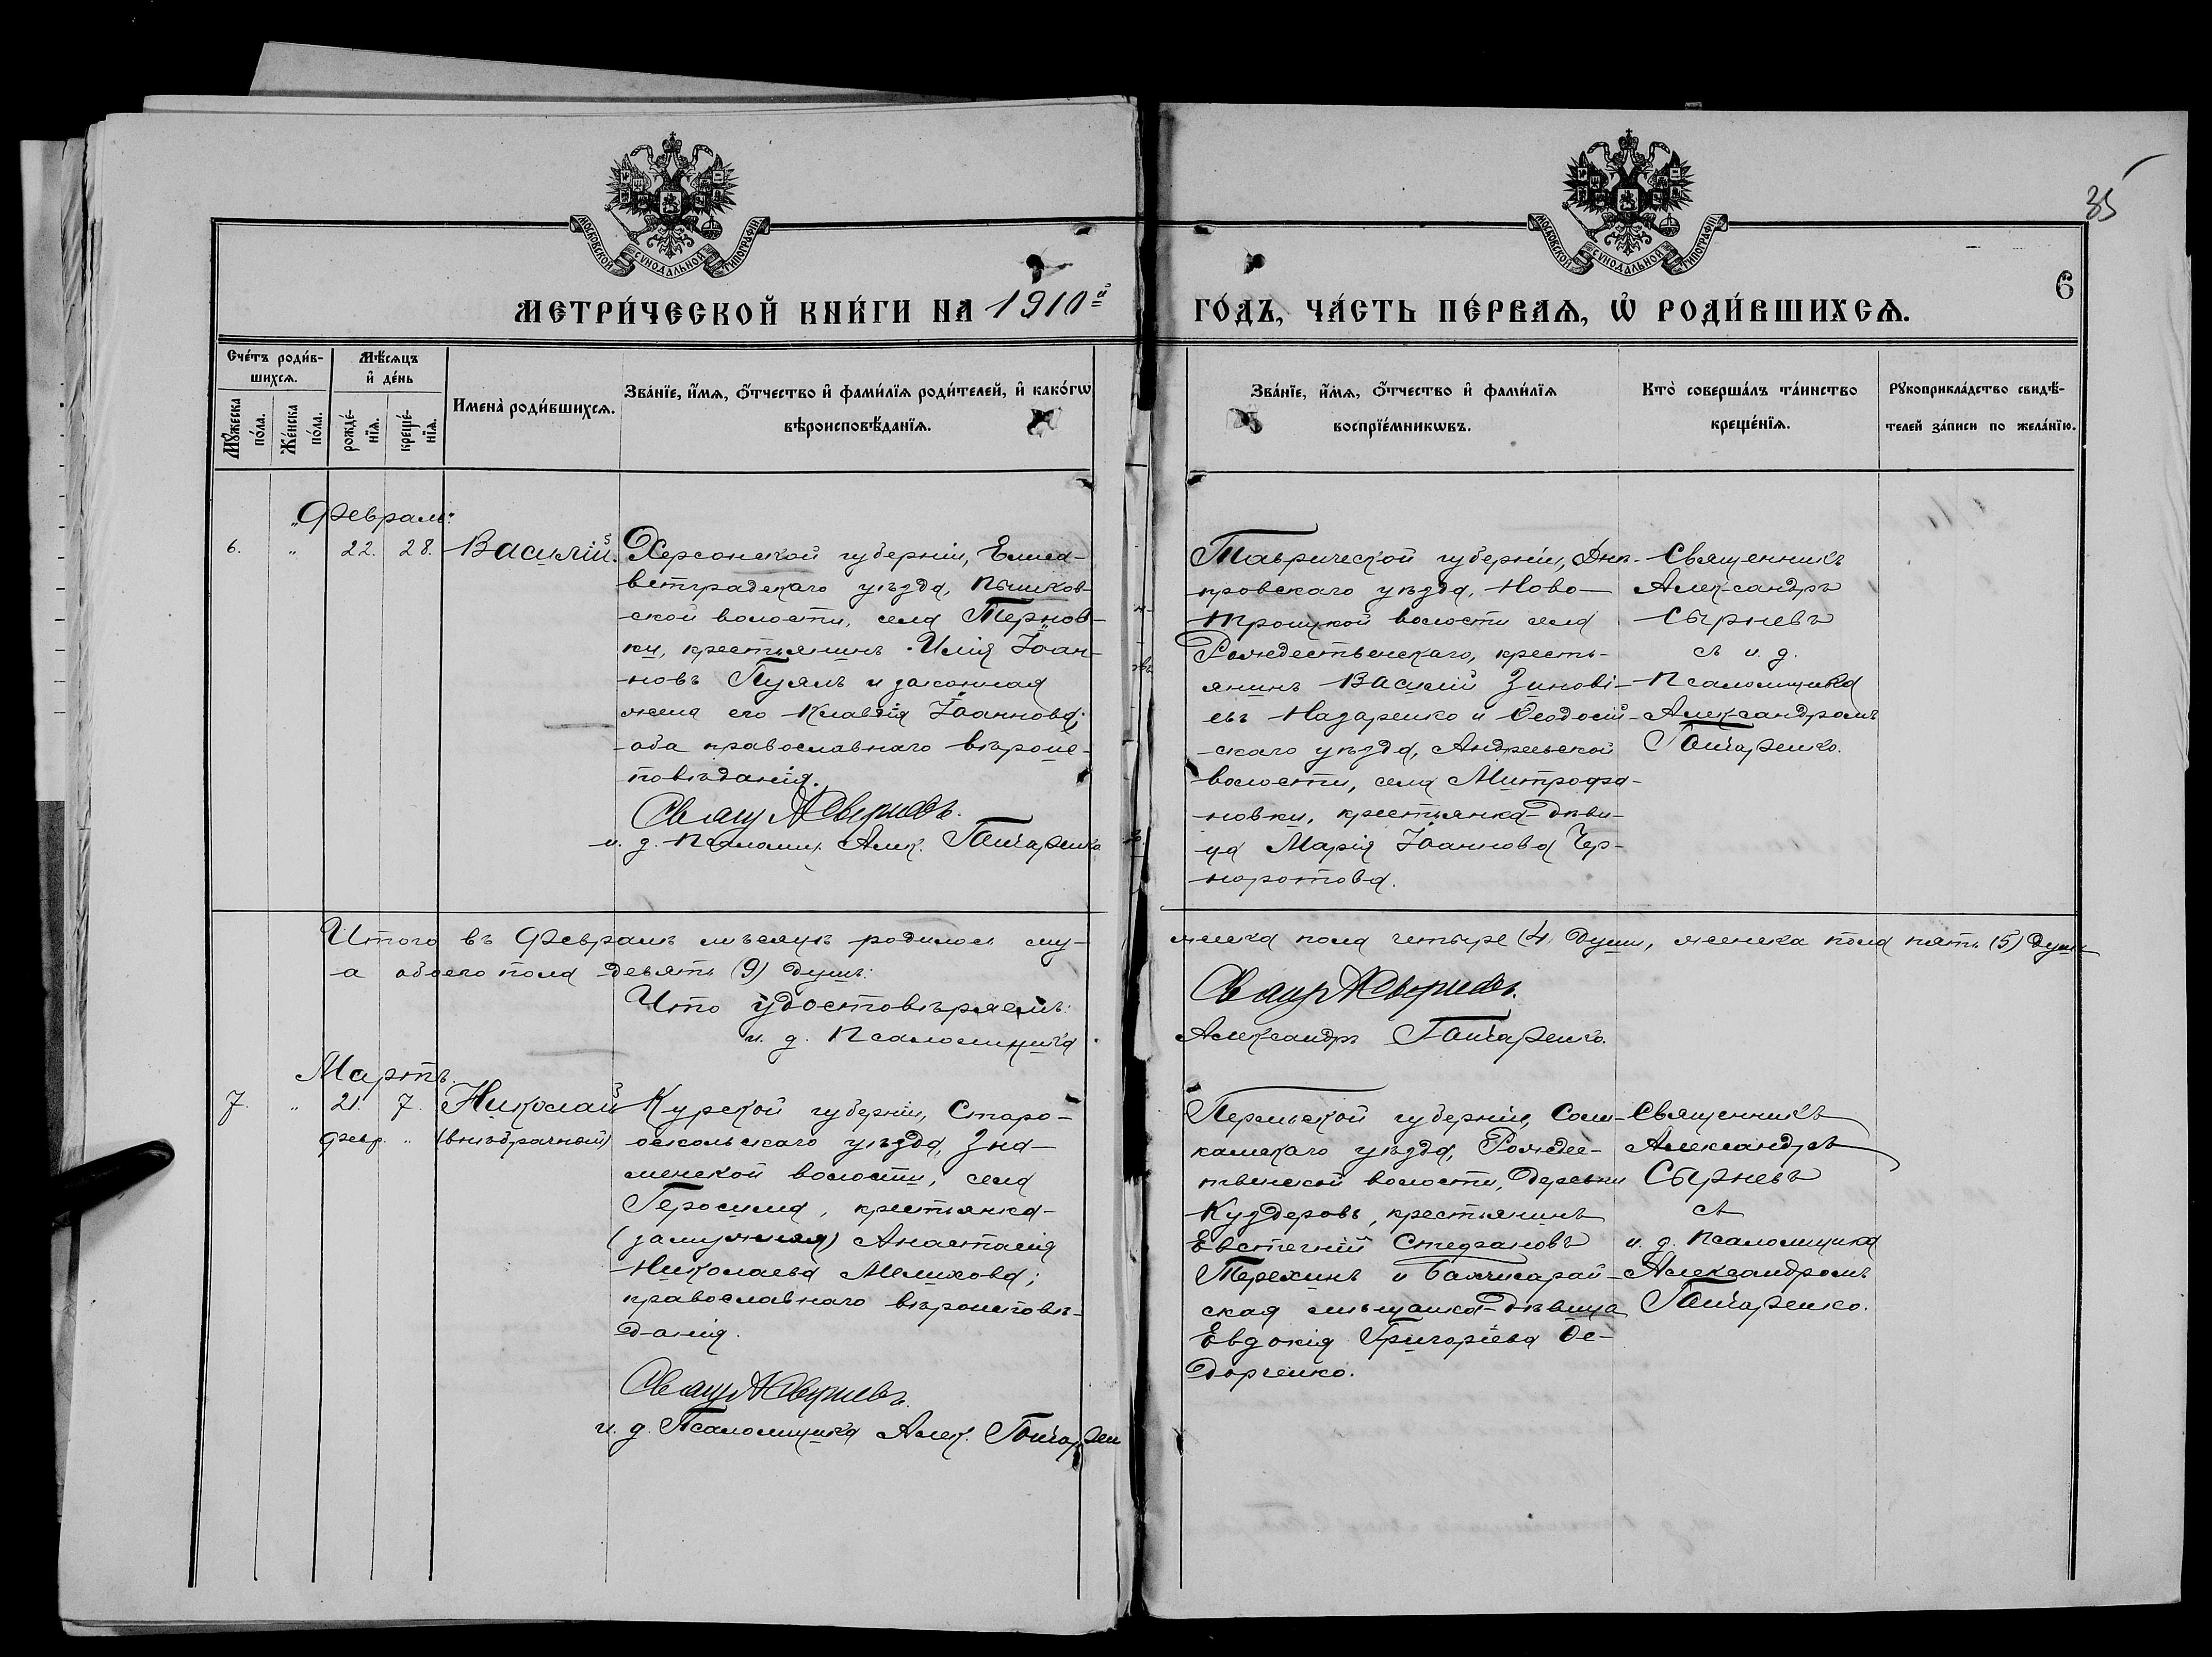 35
6
МОСКОВСКОЙ СУНОДАЛЬНОЙ ТИПОГРАФІИ
МОСКОВСКОЙ СУНОДАЛЬНОЙ ТИПОГРАФІИ
МЕТРИ́ЧЕСКОЙ КНИ́ГИ НА 1910й
ГО́ДЪ, ЧА́СТЬ ПЕ́РВАѦ, Ѡ РОДИ́ВШИХСѦ.
Сче́тъ роди́в-
шихсѧ.
Мѣ́сѧцъ
и де́нь
Мꙋ́жеска
по́ла.
Же́нска
по́ла.
рожде́-
нїѧ.
креще́-
нїѧ.
Имена̀ роди́вшихсѧ.
Зва́нїе, и́мѧ, ѻ́тчество и фами́лїѧ роди́телей, и како́гѡ
вѣроисповѣ́данїѧ.
Зва́нїе, и́мѧ, ѻ́тчество и фами́лїѧ
воспрїе́мникѡвъ.
Кто̀ соверша́лъ та́инство
креще́нїѧ.
Рꙋкоприкла́дство свидѣ́-
телей за́писи по жела́нїю.
„Февраль“
6. „ 22. 28. Василій.5
Херсонской губерніи, Елиса-
ветградскаго уѣзда,
ской волости, села Тернов-
ки, крестьянинъ Илія Іоан-
новъ Пуялъ и законная
жена его Клавдія Іоаннова;
оба православнаго вѣроис-
повѣданія.
Свящ А Сырневъ.
и. д. Псаломщ. Алек. Гончаренко
Таврической губерніи, Днѣ-
провскаго уѣзда, Ново-
троицкой волости села
Рождественскаго, кресть-
янинъ Василій Зиновi-
евъ Назаренко и Ѳеодосій-
скаго уѣзда, Андреевской
волости, села Митрофа-
новки, крестьянка-дѣви-
ца Марія Іоаннова Чер-
норотова.
Священникъ
Александръ
Сырневъ
съ и. д.
Псаломщика
Александромъ
Гончаренко.
Итого въ Февралѣ мѣсяцѣ родилось му-
жеска пола четыре (4) души, женска пола пять (5) душъ
а обоего пола девять (9) душъ:
Что удостовѣряемъ:
Свящ А Сырневъ.
и. д. Псаломщика
Александръ Гончаренко.
Мартъ.
7. „ 21. 7. Николай3
Февр. „ (внѣбрачный)
Курской губерніи, Старо-
оскольскаго уѣзда, Зна-
менской волости, села
Геросима, крестьянка-
(замужняя) Анастасія
Николаева Мелихова;
православнаго вѣроисповѣ-
данія.
Свящ А Сырневъ.
и. д. Псаломщика Алек. Гончарен
Пермской губерніи, Соли-
камскаго уѣзда, Рождес-
твенской волости, деревни
Куздеровъ, крестьянинъ
Евстегній Стефановъ
Терехинъ и Бахчисарай-
ская мѣщанка-дѣвица
Евдокія Григоріева Ѳе-
дорченко.
Священникъ
Александръ
Сырневъ
съ
и. д. Псаломщика
Александромъ
Гончаренко.